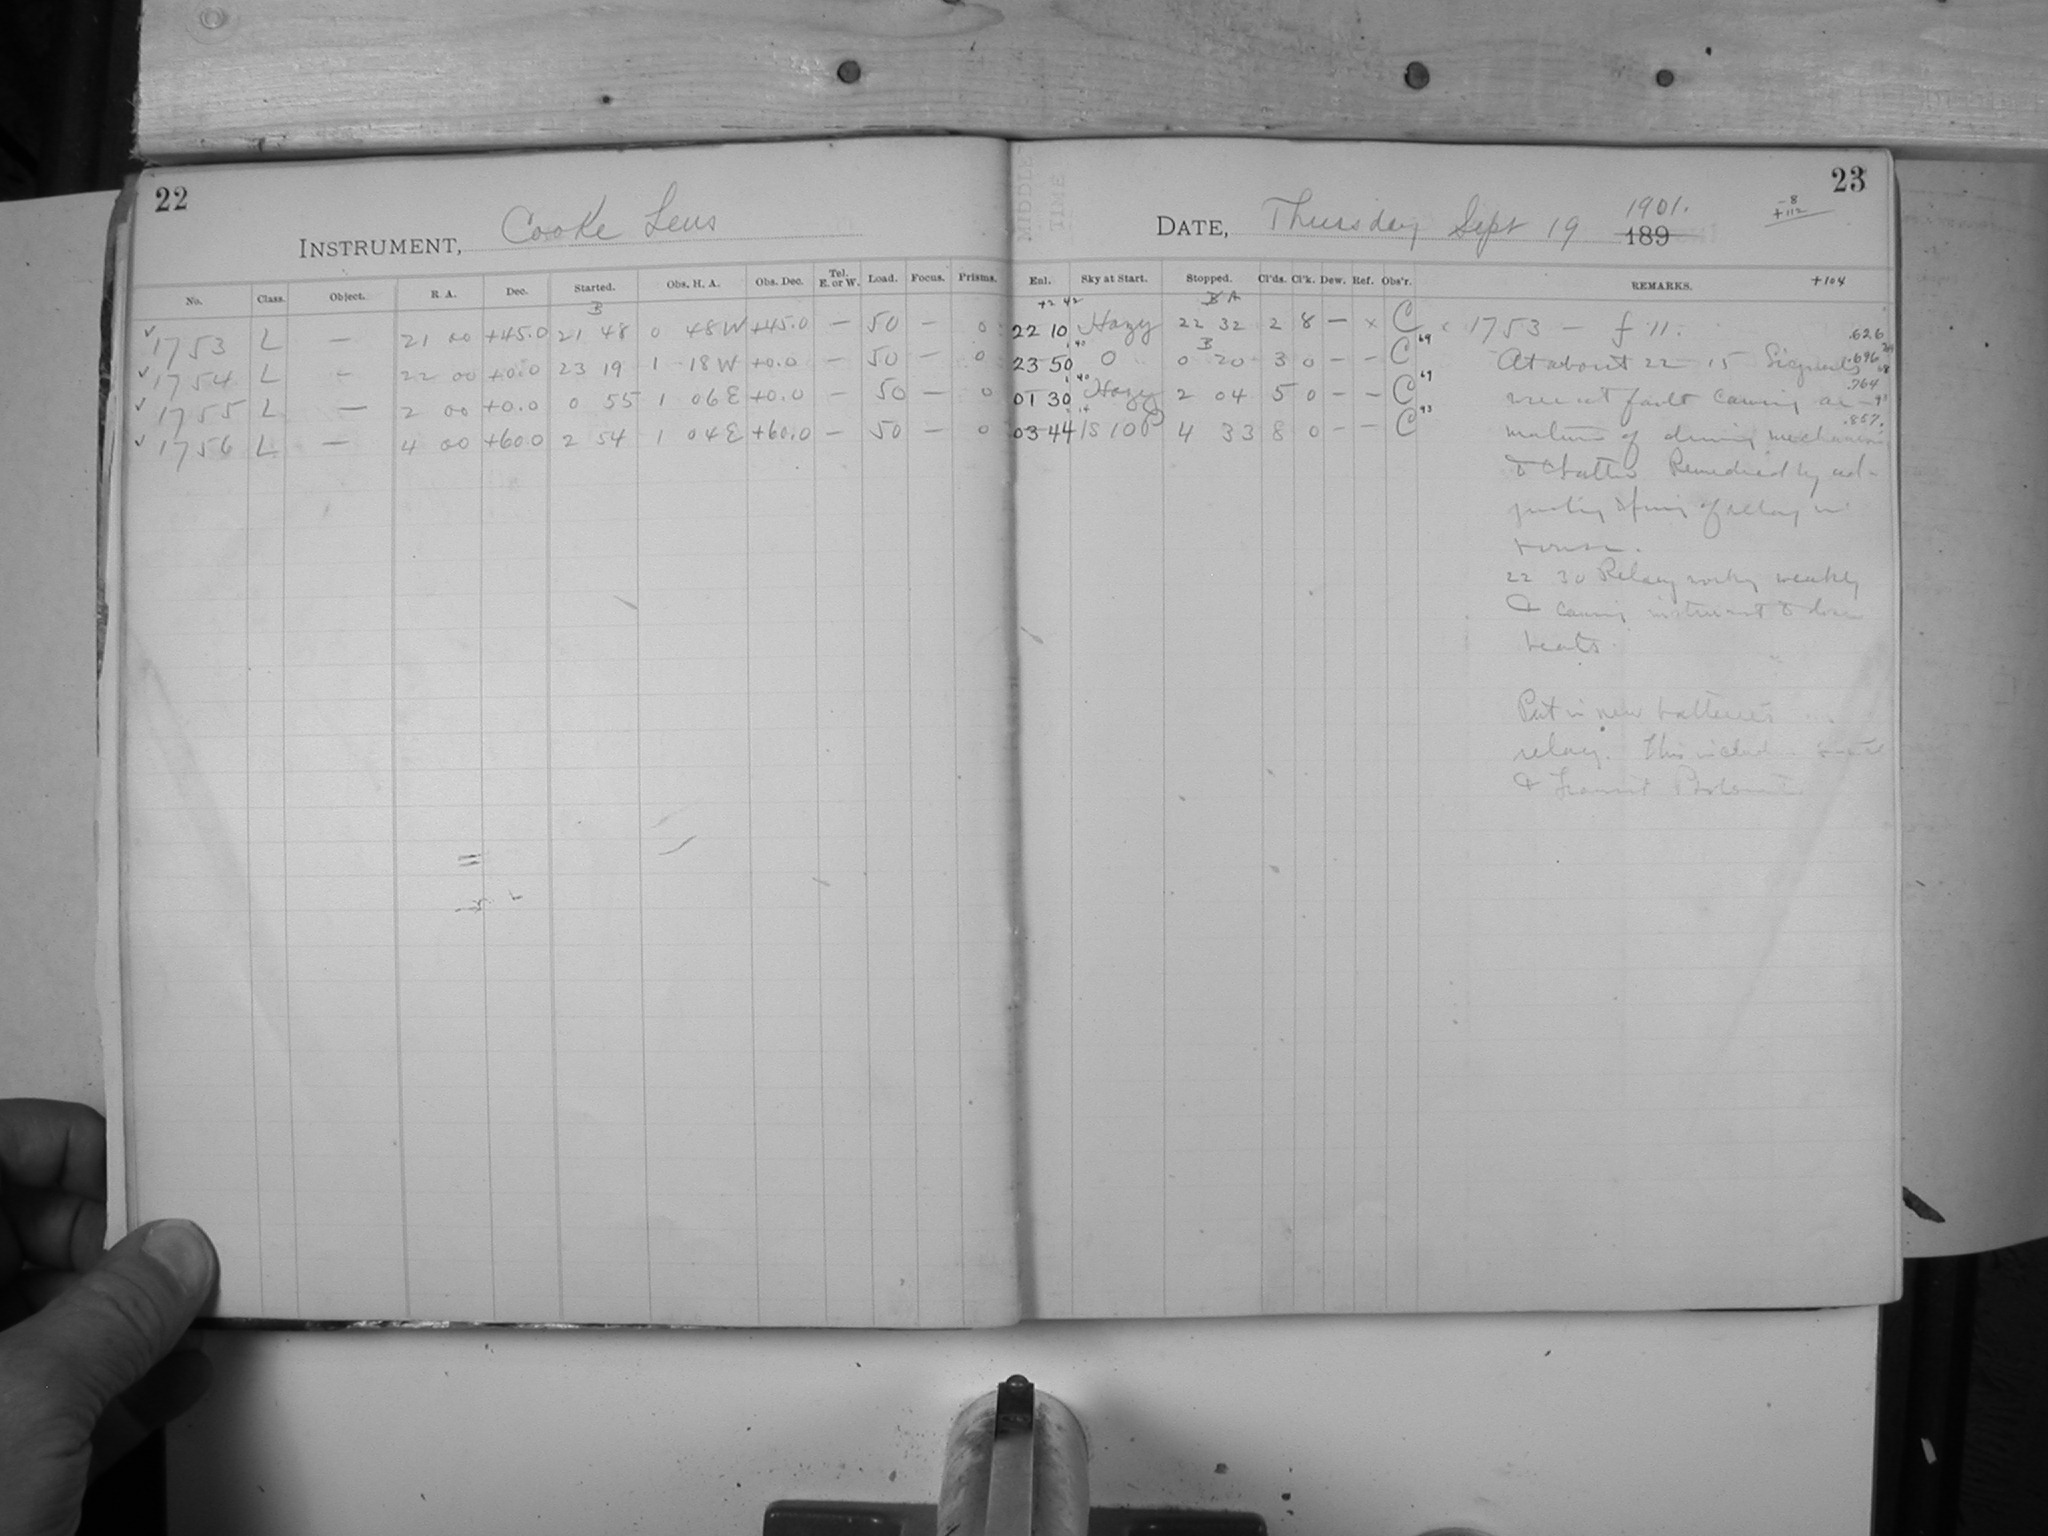 22
INSTRUMENT, Cooke Lens
No. Class. Object. R. A. Dec. Started. Obs. H. A. Obs. Dec. Tel. E. or W. Load. Focus. Prisms.
B
✓ 1753 L — 21 00 +45.0 21 48 0 48W +45.0 — 50 — 0
✓ 1754 L — 22 00 +0.0 23 19 1 18W +0.0 — 50 — 0
✓ 1755 L — 2 00 +0.0 0 55 1 06E +0.0 — 50 — 0
✓ 1756 L — 4 00 +60.0 2 54 1 04E +60.0 — 50 — 0
23
MIDDLE TIME
DATE, Thursday Sept 19 1901. 189
-8
+112
+104
Enl. Sky at Start. Stopped. Cl'ds. Cl'k. Dew. Ref. Obs'r. REMARKS.
+2 42 B A
22 10 Hazy 22 32 2 8 — x C
1 40 B 69
23 50 0 0 20 3 0 — — C
1 40 69
01 30 Hazy 2 04 5 0 — — C
2 14 93
03 44 IS 10 P 4 33 8 0 — — C
1753 — f 11.
.626
At about 22 15 Signals
.696
were at fault causing ar-
.764
mature of driving mechanism
.857.
to chatter Remedied by ad-
justing spring of relay in
house.
22 30 Relay working weakly
& causing instrument to lose
beats.
Put in new batteries
relay. This
& Transit